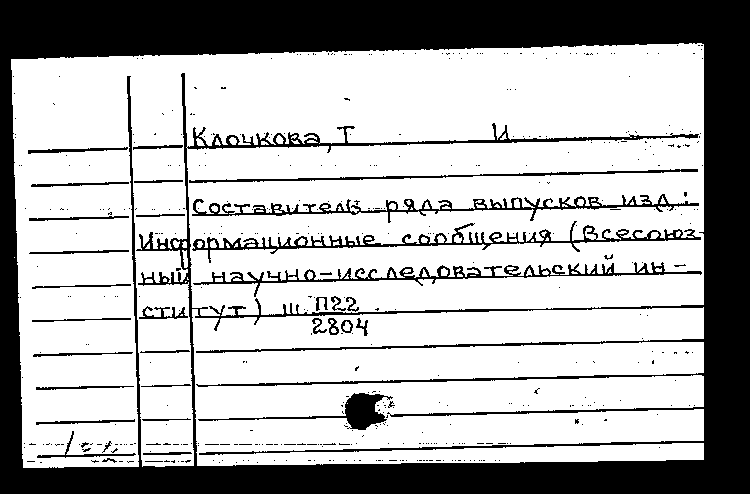 Клочкова, Т И
Составитель ряда выпусков изд.:
Информационные сообщения (Всесоюз-
ный научно-исследовательский ин-
ститут) Ш П22
2804